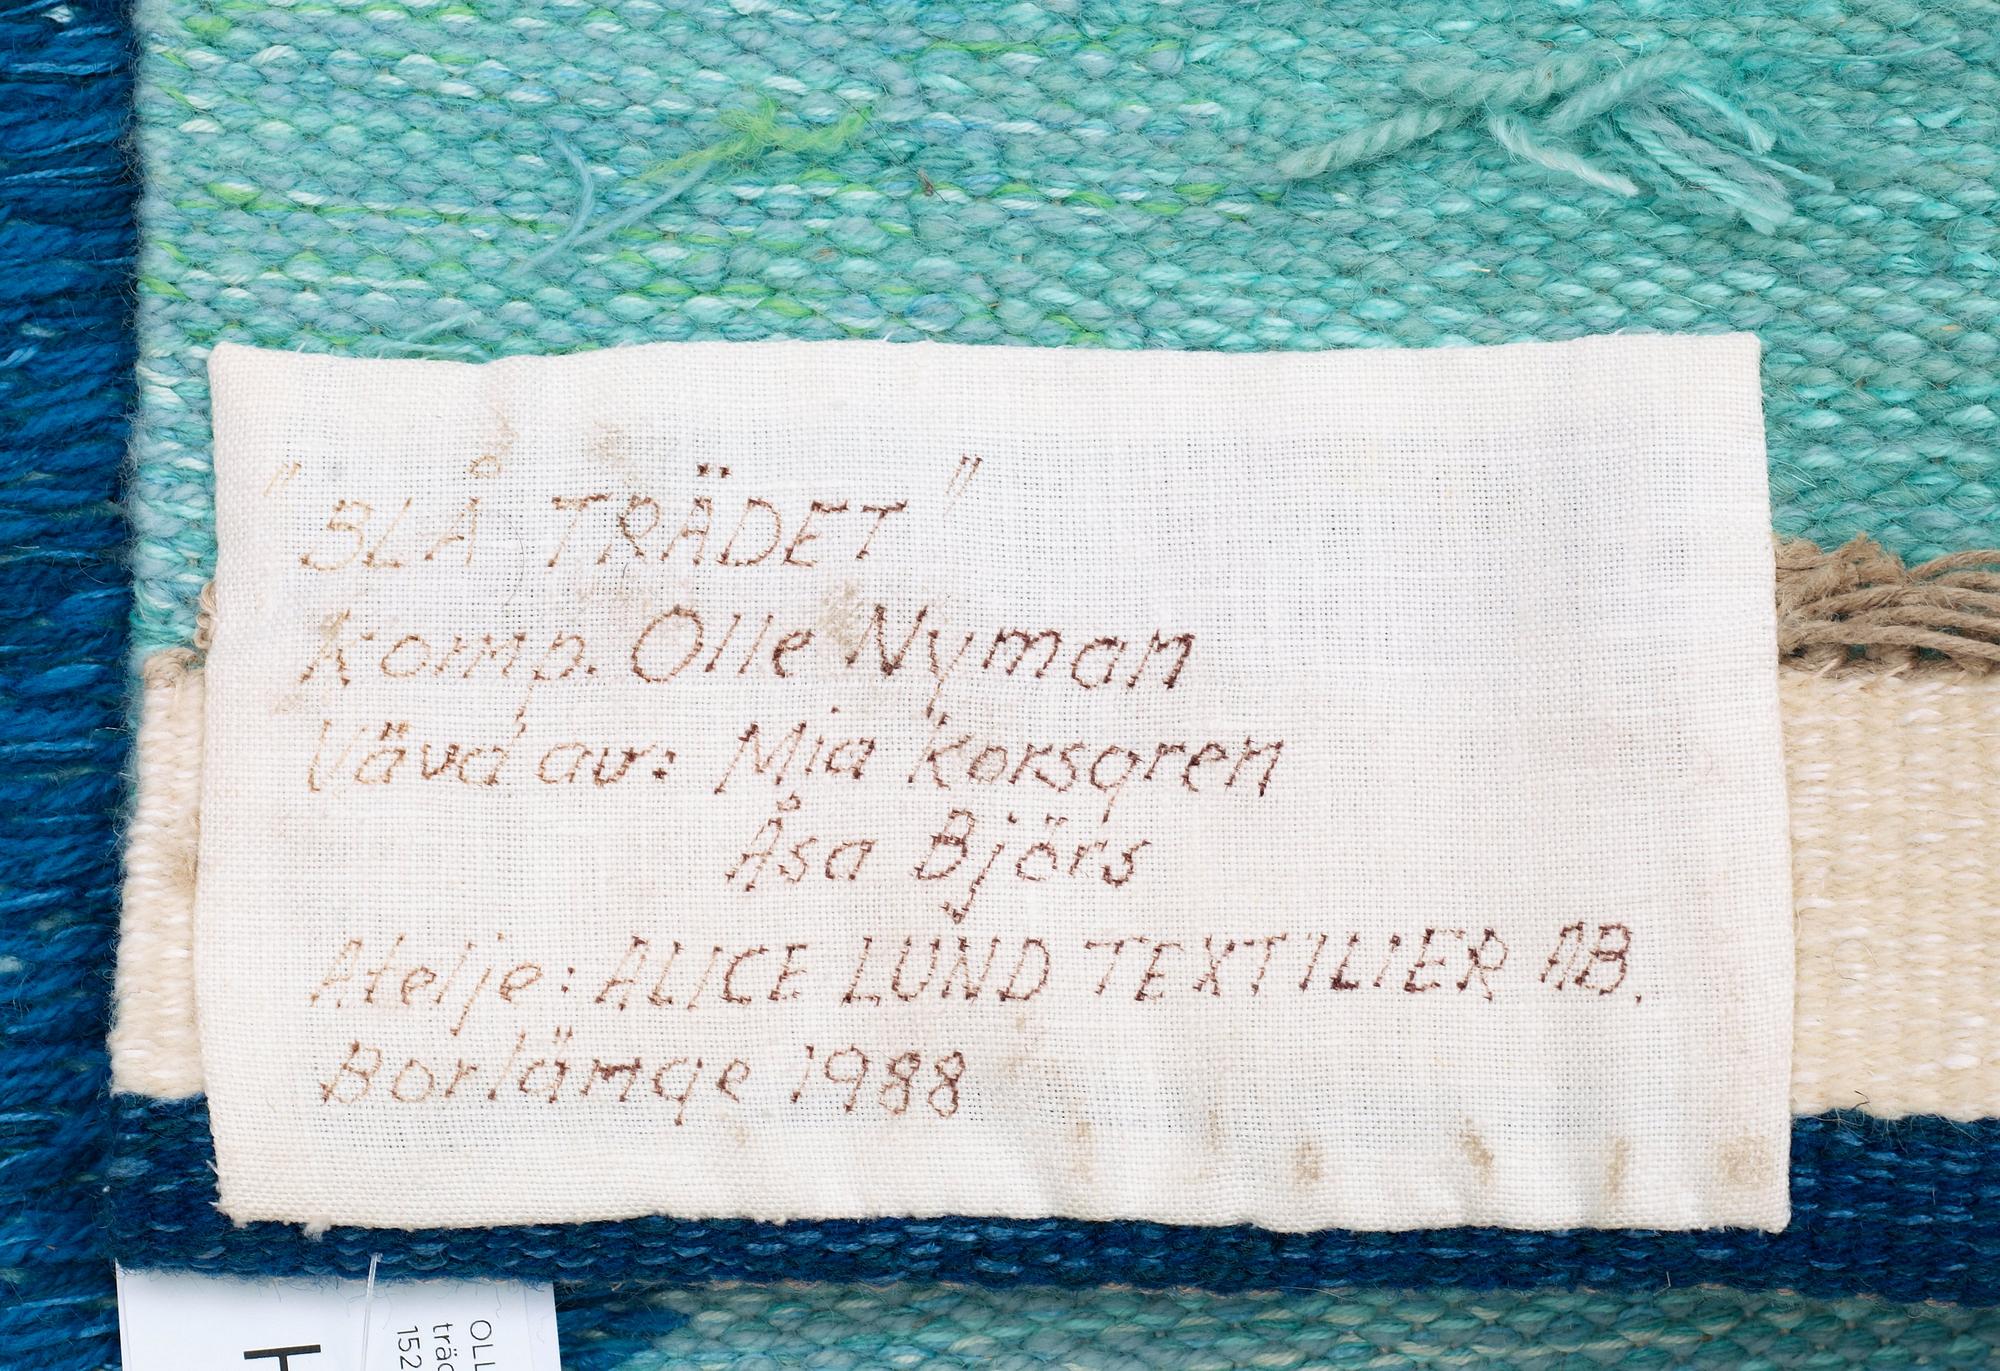 "BLÅ TRÄDET"
Komp. Olle Nyman
Vävd av: Mia Korsgren
Åsa Björs
Atelje: ALICE LUND TEXTILIER AB.
Borlänge 1988
OLL
träd
152
H